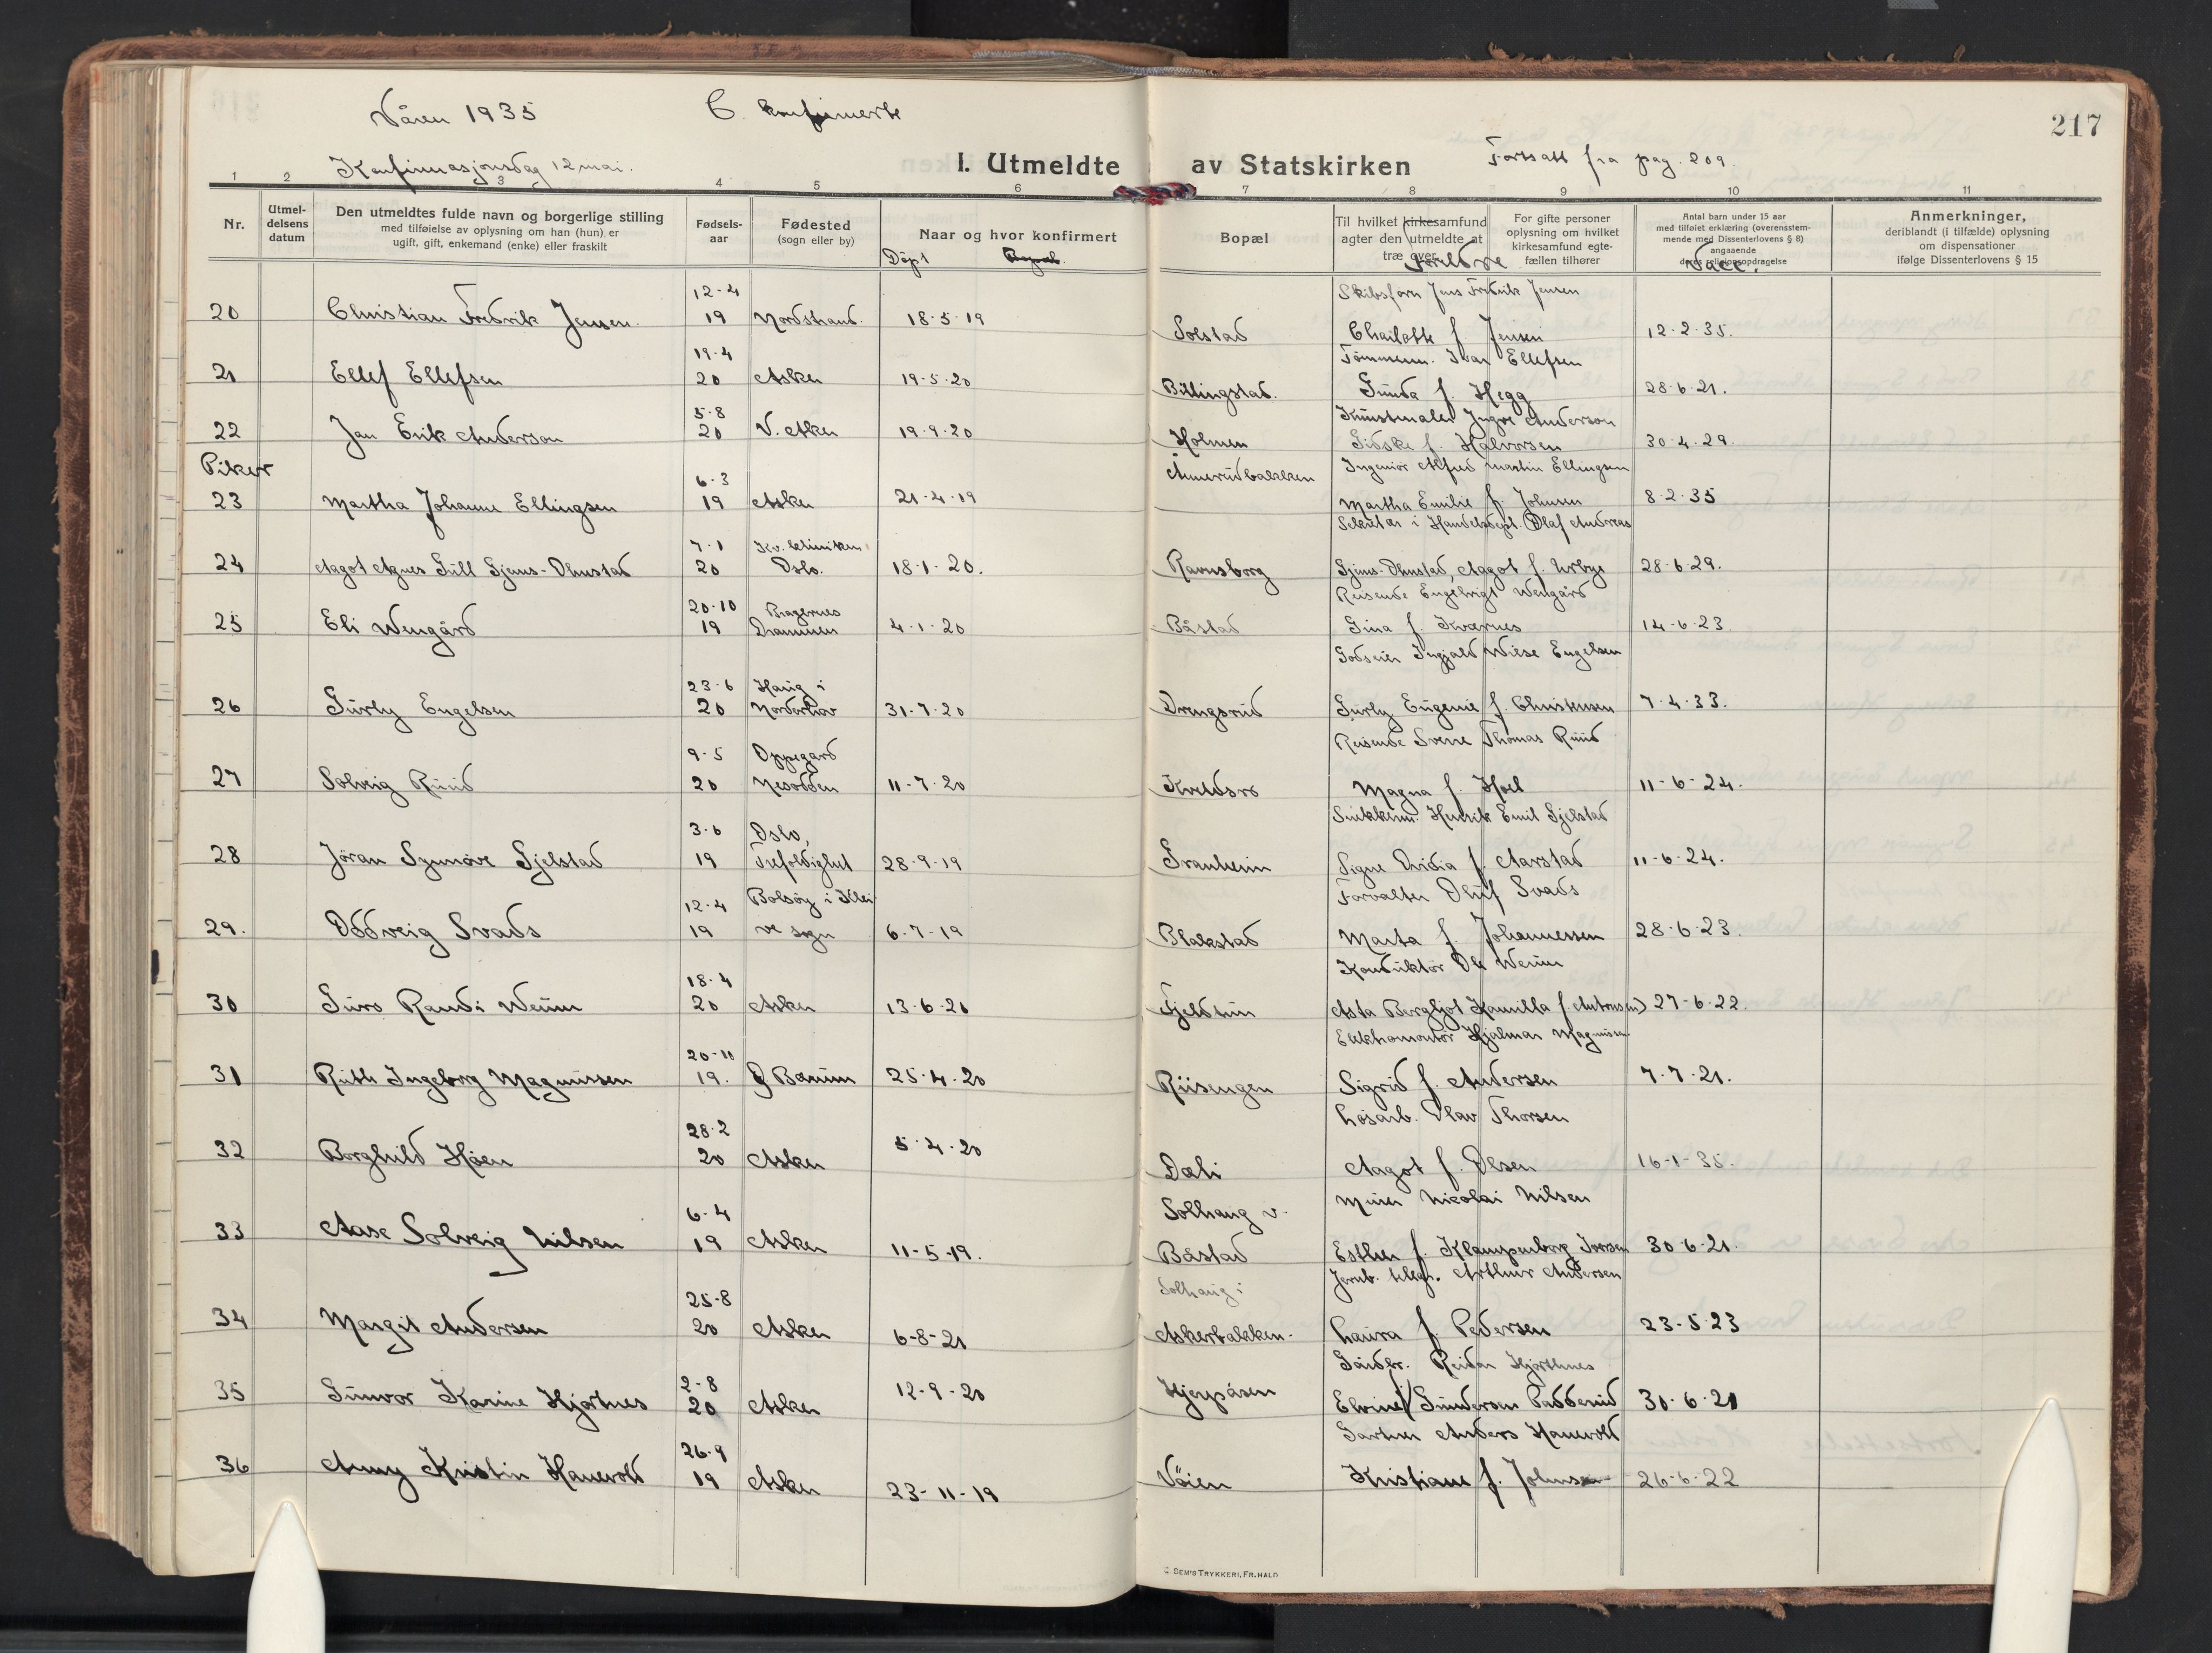 Våren 1935
C. konfirmerte
217
Konfirmasjonsdag 12 mai.
I. Utmeldte av Statskirken
Fortsatt fra pag. 209.
1 2 3 4 5 6 7 8 9 10 11
Nr.
Utmel-
delsens
datum
Den utmeldtes fulde navn og borgerlige stilling
med tilføielse av oplysning om han (hun) er
ugift, gift, enkemand (enke) eller fraskilt
Fødsels-
aar
Fødested
(sogn eller by)
Naar og hvor konfirmert
Døpt
Bopæl
Til hvilket kirkesamfund
agter den utmeldte at
træ over
Foreldre
For gifte personer
oplysning om hvilket
kirkesamfund egte-
fællen tilhører
Antal barn under 15 aar
med tilføiet erklæring (overensstem-
mende med Dissenterlovens § 8)
angaaende
deres religionsopdragelse
Vacc.
Anmerkninger,
deriblandt (i tilfælde) oplysning
om dispensationer
ifølge Dissenterlovens § 15
12-4 Skibsførn Jens Fredrik Jensen
20 Christian Fredrik Jensen. 19 Nordstrand. 18-5-19 Solstad Charlotte f Jensen 12-2-35.
19-4 Tømmerm. Ivar Ellefsen
21 Ellef Ellefsen 20 Asker 19-5-20 Billingstad. Gunda f. Hegg 28-6-21.
5-8 Kunstmaler Ingve Anderson
22 Jan Erik Anderson 20 V. Asker 19-9-20 Holmen Sidske f. Halvorsen 30-4-29.
Piker
6-3 Annerudbakken Ingeniør Alfred Martin Ellingsen
23 Martha Johanne Ellingsen 19 Asker 21-4-19 Martha Emilie f. Johnsen 8-2-35
7-1 Kv. klinikken Sekretær i Handelsdept. Olaf Andreas
24 Aagot Agnes Gull Gjems-Onstad 20 Oslo. 18-1-20. Ravnsborg Gjems-Onstad, Aagot f. Urbye 28-6-29.
20-10 Bragernes Reisende Engelbrigt Wengård
25 Eli Wengård 19 Drammen 4-1-20 Båstad Gina f. Kværnes 14-6-23.
Godseier Ingjald Wiese Engelsen
23-6 Haug i
26 Gurly Engelsen 20 Norderhov 31-7-20 Drengsrud Gurly Eugenie f. Christensen 7-4-33.
9-5 Oppegård Reisende Sverre Thomas Ruud
27 Solveig Ruud 20 Nesodden 11-7-20 Kveldsro Magna f. Hoel 11-6-24.
3-6 Oslo, Snekkerm. Henrik Emil Gjelstad
28 Jøran Synnøve Gjelstad 19 Trefoldighet 28-9-19 Granheim Signe Ovidia f. Aarstad 11-6-24.
12-4 Bolsøy i Klei Forvalter Oluf Svads
29. Oddveig Svads 19 ve sogn 6-7-19 Blakstad Marta f. Johannessen 28-6-23.
18-4 Konduktør Ole Weum
30 Guro Randi Weum 20 Asker 13-6-20 Fjeldtun Asta Bergljot Kamilla f. Antonsen) 27-6-22.
20-11 Elektromontør Hjalmar Magnussen
31 Ruth Ingeborg Magnussen 19. Ø Bærum 25-4-20 Riisengen Sigrid f. Andersen 7-7-21.
28-2 Løsarb. Olav Thorsen
32 Borghild Høen 20 Asker 5-4-20 Dæli Aagot f. Olsen 16-1-35.
6-4 Solhaug v. Murer Nicolai Nilsen
33 Aase Solveig Nilsen 19 Asker 11-5-19. Båstad Esther f. Klampenborg Iversen 30-6-21.
25-8 Solhaug i Jernb. telegr. Arthur Andersen
34 Margit Andersen 20 Asker 6-8-21 Askerbakken. Laura f. Pedersen 23-5-23
2-8 Gårdbr. Reidar Hjorthnes
35 Gunvor Karine Hjortnes 20 Asker 12-9-20 Hjerpåsen Elvine f Gundersen Padderud 30-6-21
26-9 Gartner Anders Hanevold
36 Anny Kristin Hanevold 19 Asker 23-11-19 Vøien Kristiane f. Johnsen 26-6-22
C. SEM'S TRYKKERI, FR.HALD